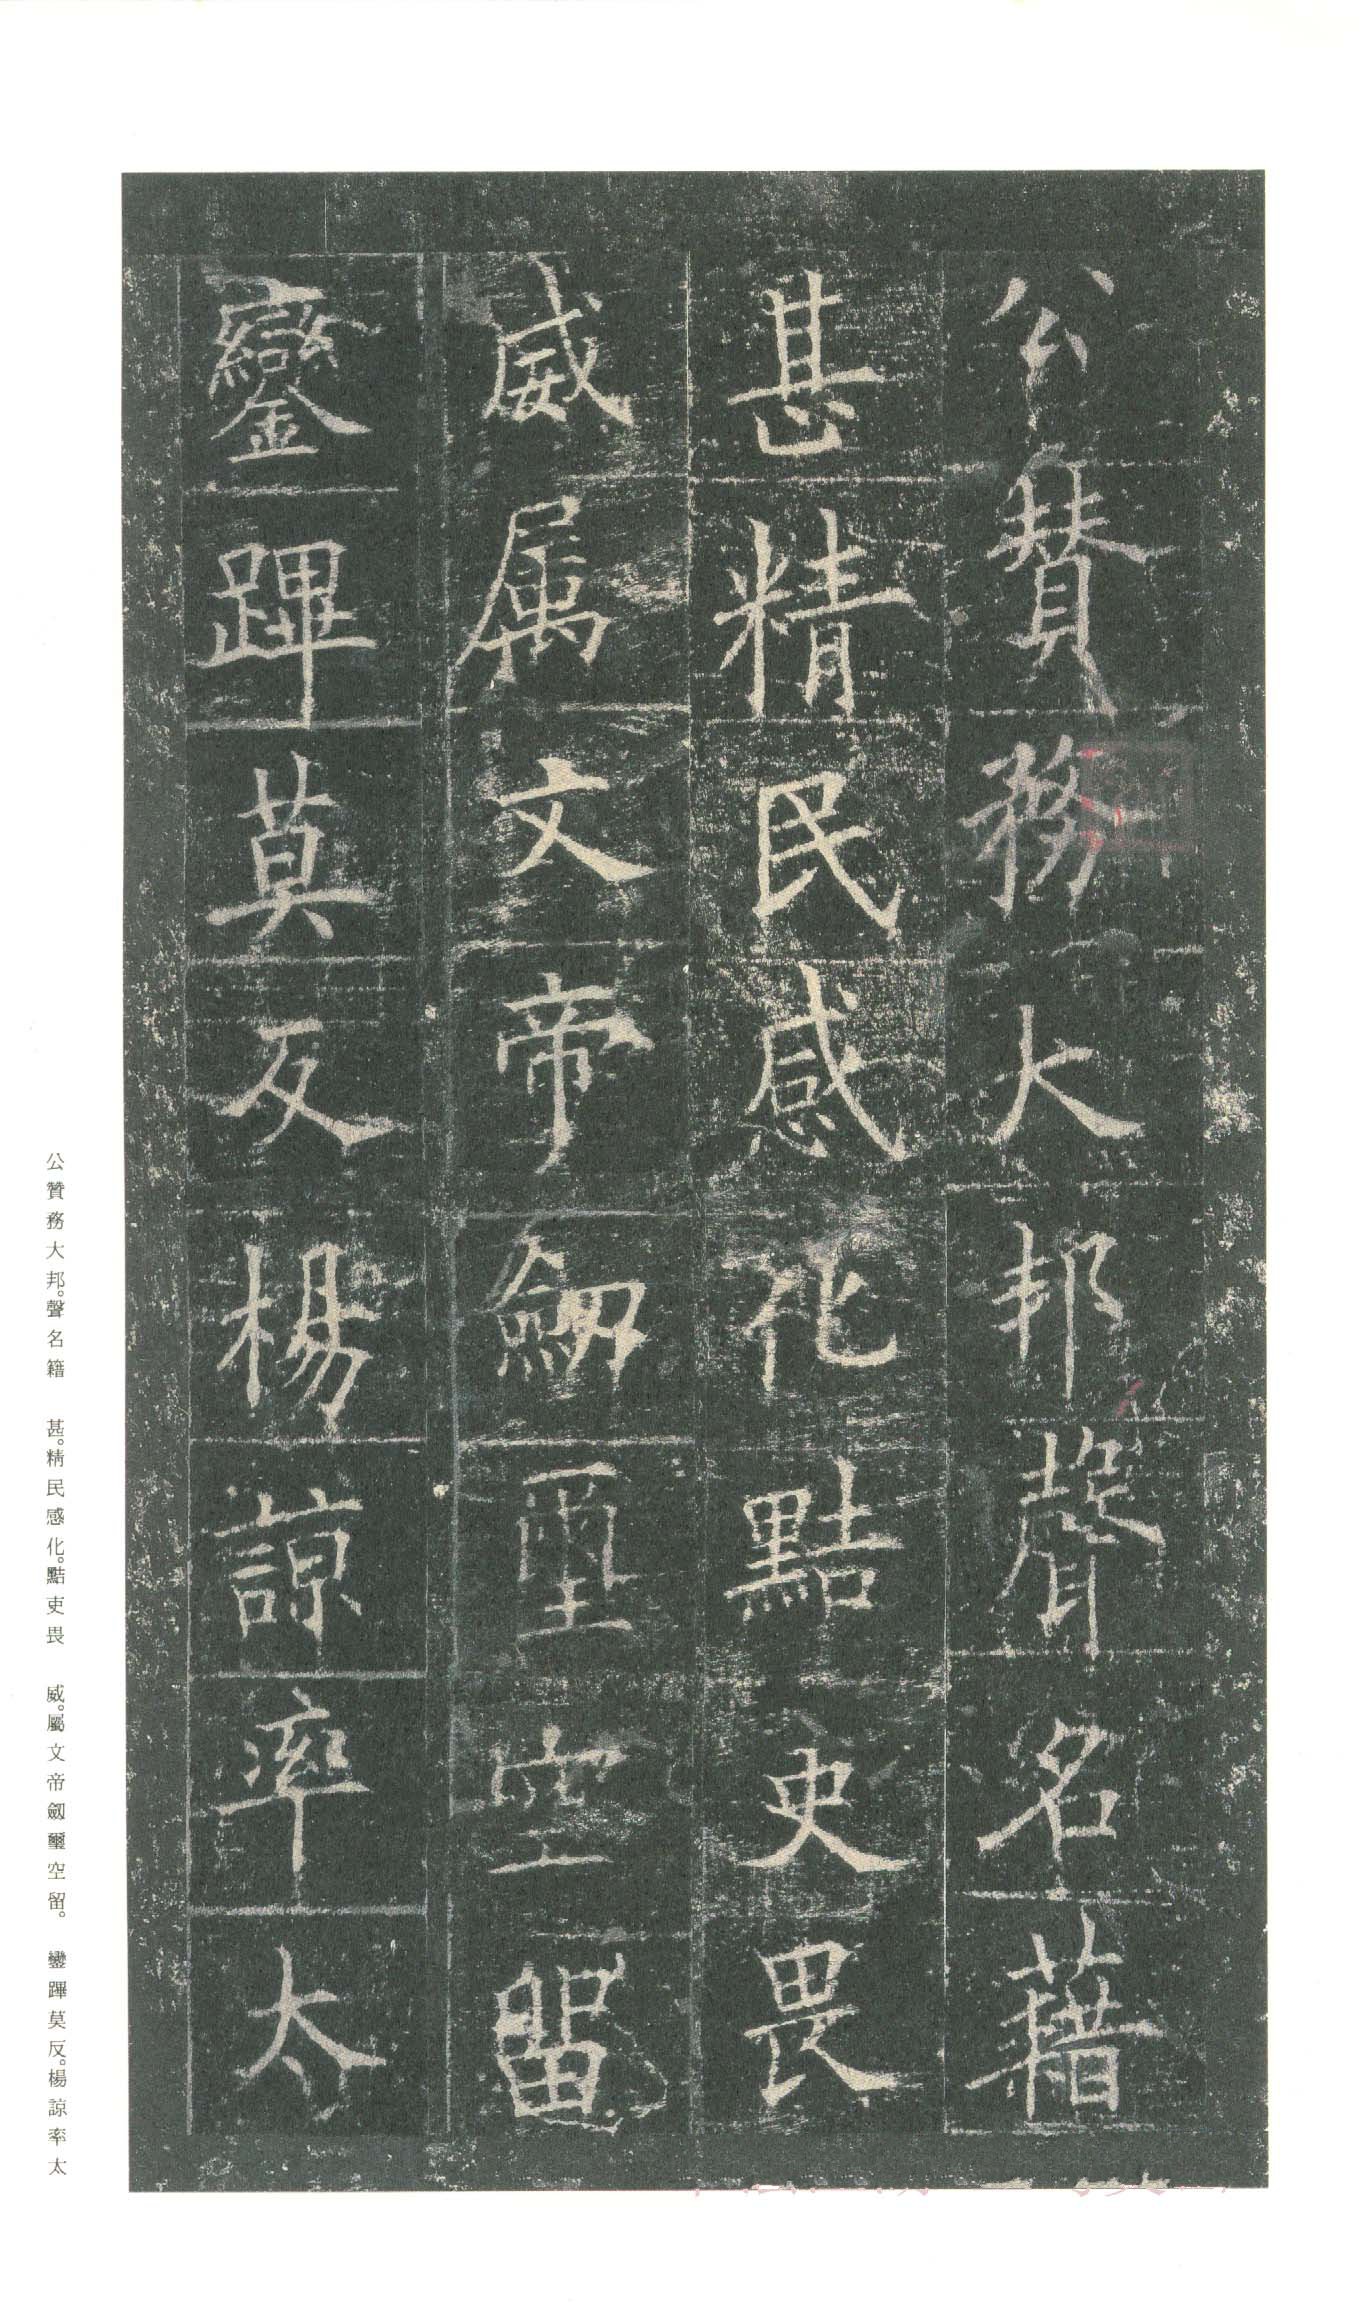 公賛務大邦聲名藉
甚精民感化黠吏畏
威属文帝劒璽空留
鑾蹕莫反楊諒率太
公贊務大邦。聲名籍 甚。精民感化。黠吏畏 威。屬文帝劒璽空留。 鑾蹕莫反。楊諒率太